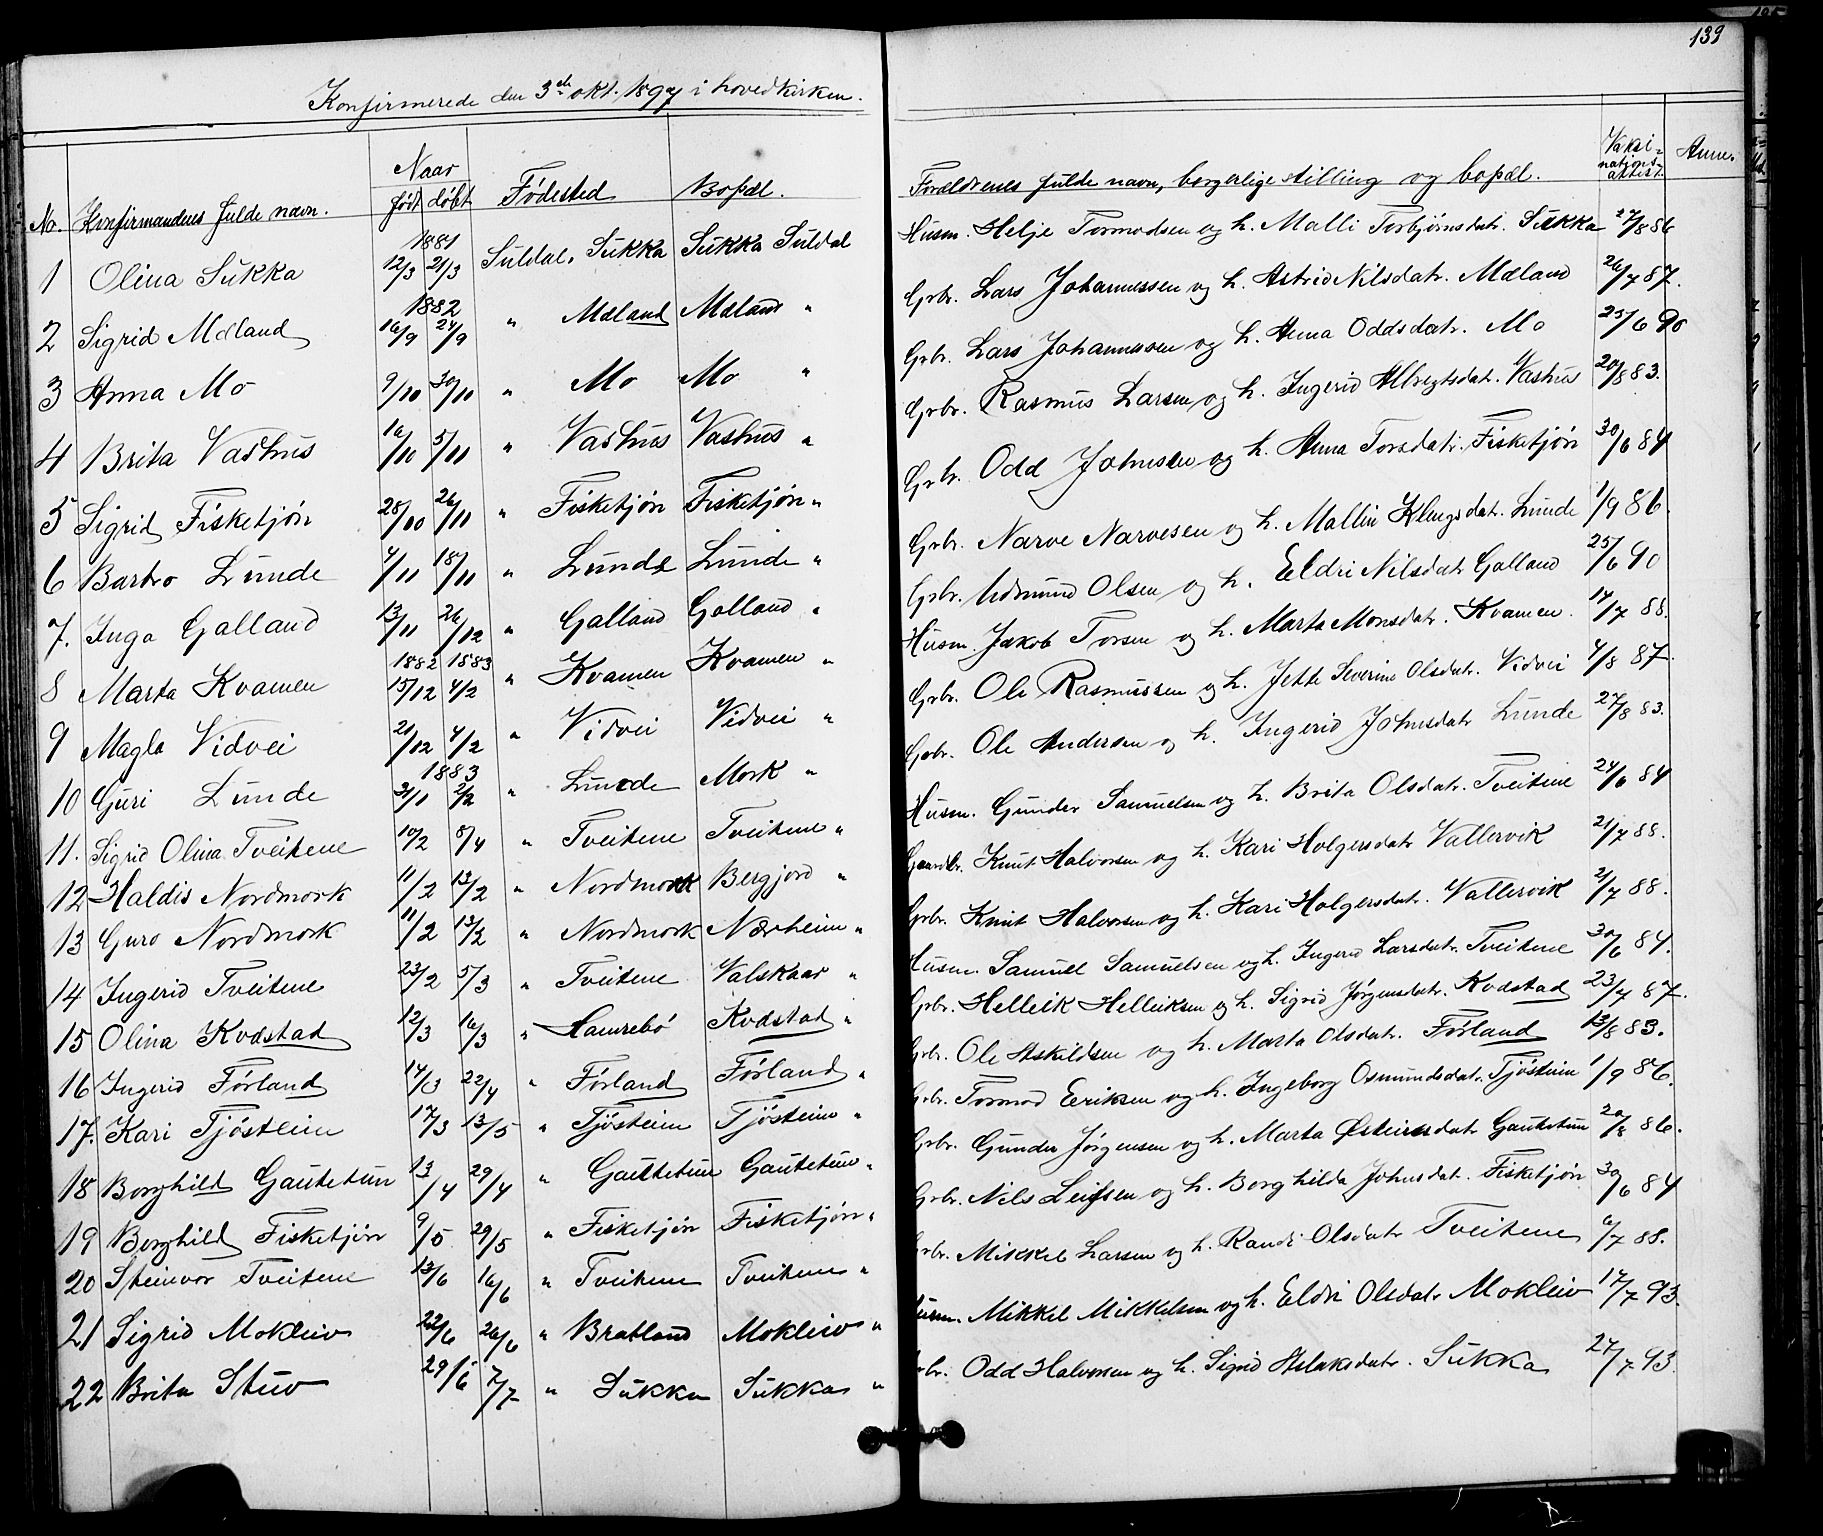 139
Konfirmerede den 3de okt. 1897 i hovedkirken.
No. Konfirmandens fulde navn. Naar født døbt Fødested Bopæl. Forældrenes fulde navn, borgerlige stilling og bopæl. Vaksinationsattest. Anm.
1 Olina Sukka 1881 12/3 21/3 Suldal, Sukka Sukka Suldal Husm. Helje Tormodsen og h. Malli Torbjørnsdatr. Sukka 27/8 86
2 Sigrid Mæland 1882 16/9 24/9 " Mæland Mæland " Grbr. Lars Johannessen og h. Astrid Nilsdatr. Mæland 26/7 87.
3 Anna Mo 9/10 30/10 " Mo Mo " Grbr. Lars Johannessen og h. Anna Oddsdatr. Mo 25/6 90
4 Brita Vashus 16/10 5/11 " Vashus Vashus " Grbr. Rasmus Larsen og h. Ingerid Albregtsdatr. Vashus 20/8 83.
5 Sigrid Fisketjøn 28/10 26/11 " Fisketjøn Fisketjøn " Grbr. Odd Johnsen og h. Anna Torsdatr. Fisketjøn 30/6 84
6 Barbro Lunde 4/11 18/11 " Lunde Lunde " Grbr. Narve Narvesen og h. Mallin Klengsdatr. Lunde 1/9 86.
7. Inga Galland 13/11 26/12 " Galland Galland " Grbr. Udmund Olsen og h. Eldri Nilsdatr Galland 25/6 90
8 Marta Kvamen 1882 1883 15/12 4/2 " Kvamen Kvamen " Husm. Jakob Torsen og h. Marta Monsdatr. Kvamen. 14/7 88.
9 Magla Vidvei 21/12 4/2 " Vidvei Vidvei " Grbr. Ole Rasmussen og h. Jette Severine Olsdatr. Vidvei 4/8 87.
10 Guri Lunde 1883 31/1 2/2 " Lunde Mork " Grbr. Ole Andersen og h. Ingerid Johnsdatr Lunde 27/8 83.
11. Sigrid Olina Tveitene 10/2 8/4 " Tveitene Tveitene " Husm. Gunder Samuelsen og h. Brita Olsdatr. Tveitene 24/6 84
12 Haldis Nordmork 11/2 13/2 " Nordmork Bergjord " Knut Halvorsen og h. Kari Holgersdatr Vallervik 21/7 88.
13 Guro Nordmork 11/2 13/2 " Nordmork Nærheim " Grbr. Knut Halvorsen og h. Kari Holgersdatr. Vallervik 21/7 88.
14 Ingerid Tveitene 23/2 5/3 " Tveitene Valskaar " Husm. Samuel Samuelsen og h. Ingerid Larsdatr. Tveitene 30/6 84.
15 Olina Kvdstad 12/3 16/3 " Hamrebø Kvdstad " Grbr. Helleik Helleiksen og h. Sigrid Jørgensdatr. Kvdstad 23/7 87.
16 Ingerid Førland 14/3 22/4 " Førland Førland " Grbr. Ole Askildsen og h. Marta Olsdatr. Førland 13/8 83.
17. Kari Tjøsteim 17/3 13/5 " Tjøsteim Tjøsteim " Grbr. Tormod Eriksen og h. Ingeborg Osmundsdatr. Tjøsteim 1/9 86.
18 Borghild Gautetun 13/4 29/4 " Gautetun Gautetun " Grbr. Gunder Jørgensen og h. Marta Østeinsdatr Gautetun 20/8 86.
19 Borghild Fisketjøn 9/5 29/5 " Fisketjøn Fisketjøn " Grbr. Nils Leifsen og h. Borghilda Johnsdatr. Fisketjøn 30/6 84
20 Steinvor Tveitene 13/6 16/6 " Tveitene Tveitene " Grbr. Mikkel Larsen og h. Randi Olsdatr Tveitene 6/7 88.
21 Sigrid Mokleiv 22/6 26/6 " Bratland Mokleiv " Husm. Mikkel Mikkelsen og h. Eldri Olsdatr Mokleiv 17/7 93.
22 Brita Stuv 29/6 7/7 " Sukka Sukka " Grbr. Odd Halvorsen og h. Sigrid Aslaksdatr. Sukka 27/7 93.